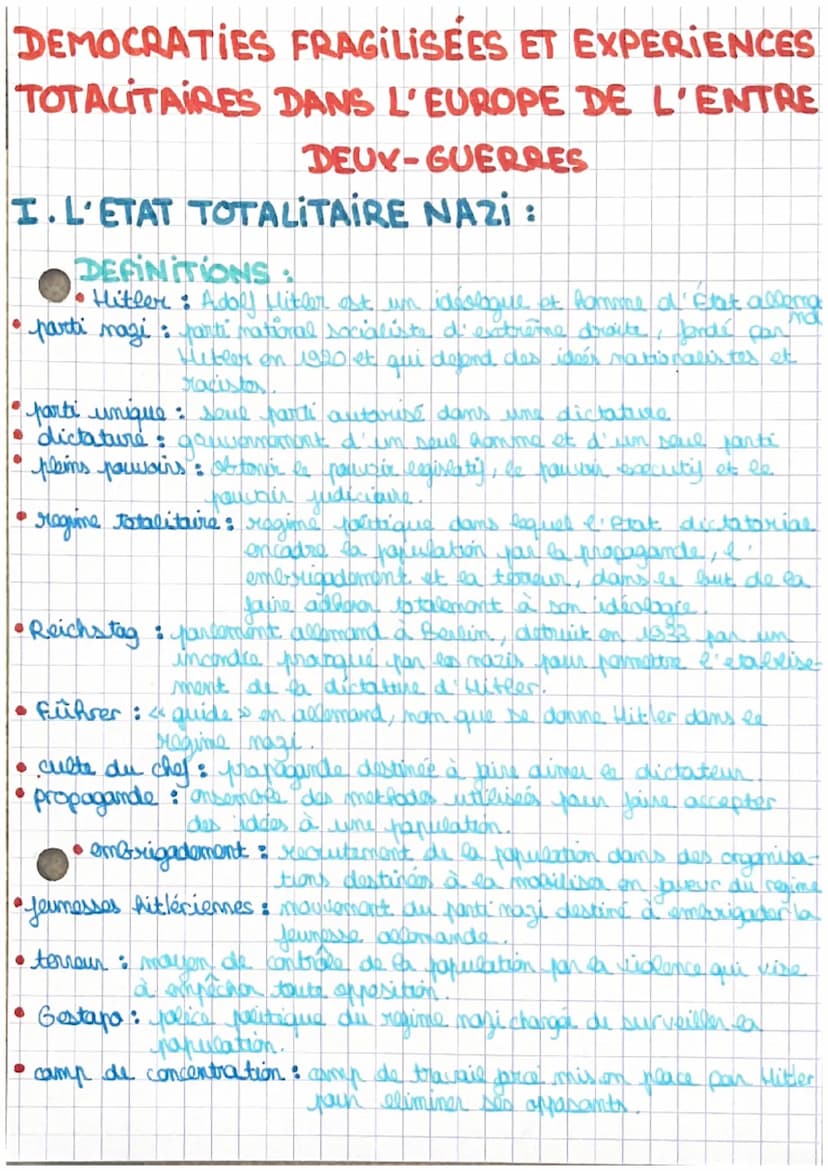 DEMOCRATIES FRAGILISÉES ET EXPERIENCES
TOTALITAIRES DANS L'EUROPE DE L'ENTRE
DEUX-GUERRES
I. L'ETAT TOTALITAIRE NAZI :
DEFINITIONS :
• Hitler : Adolf Hitler est un idéologue et homme d'État allema
nd
• parti nazi : parti national socialiste d'extrême droite, fondé par
Hitler en 1920 et qui defend des ideés nationalistes et
racistes.
• parti unique : seul parti autorisé dans une dictature
• dictature : gouvernement d'un seul homme et d'un seul parti
• pleins pouvoirs : obtenir le pouvoir legislatif, le pouvoir executif et le
pouvoir judiciaire.
• regime totalitaire : regime politique dans lequel l'Etat dictatorial
encadre la population par la propagande, l'
embrigadement et la terreur, dans le but de la
faire adherer totalement à son idéologie.
• Reichstag : parlement allemand à Berlin, detruit en 1933 par un
incendie pratiqué par les nazis pour permettre l'etablisse-
ment de la dictature d'Hitler.
• Führer : « guide » en allemand, nom que se donne Hitler dans le
regime nazi.
• culte du chef : propagande destinée à faire aimer le dictateur.
• propagande : ensemble des methodes utilisées pour faire accepter
des idées à une population.
• embrigadement : recrutement de la population dans des organisa-
tions destinées à la mobiliser en faveur du regime
• jeunesses hitlériennes : mouvement du parti nazi destiné à embrigader la
jeunesse allemande.
• terreur : moyen de contrôle de la population par la violence qui vise
à empêcher toute opposition.
• Gestapo : police politique du regime nazi chargée de surveiller la
population.
• camp de concentration : camp de travail forcé mis en place par Hitler
pour eliminer ses opposants.